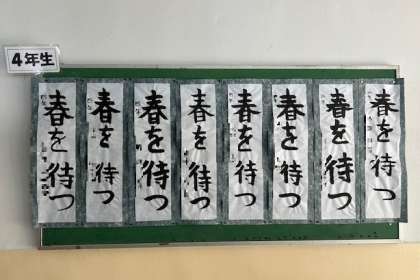 4年生
春を待つ
春を待つ
春を待つ
春を待つ
春を待つ
春を待つ
春を待つ
春を待つ